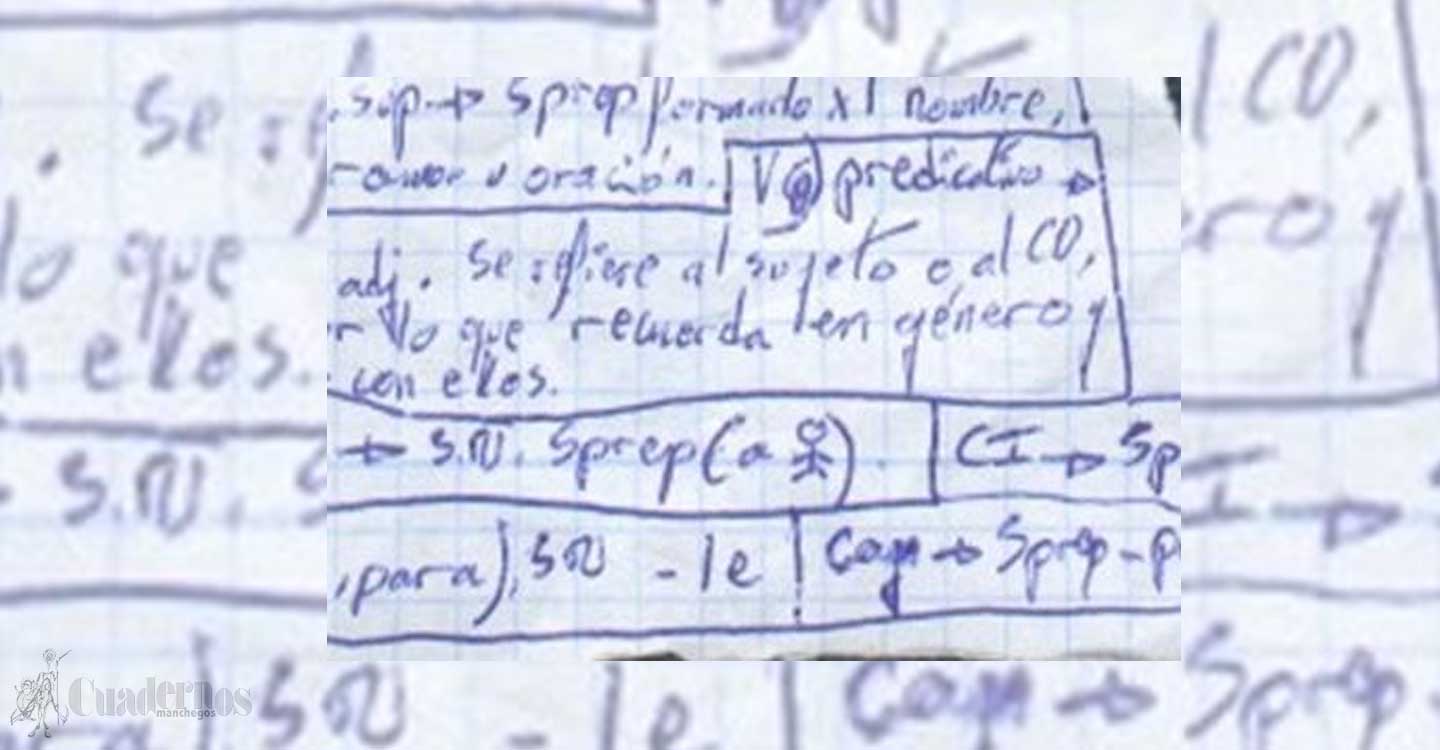 Sprep formado x 1 nombre,
u oración. predicativo →
adj. Se refiere al sujeto o al CO,
lo que recuerda en género y
con ellos.
→ S.N. Sprep (a CI → Sp
, para), SN - le → Sprep - P
Cuadernos
manchegos